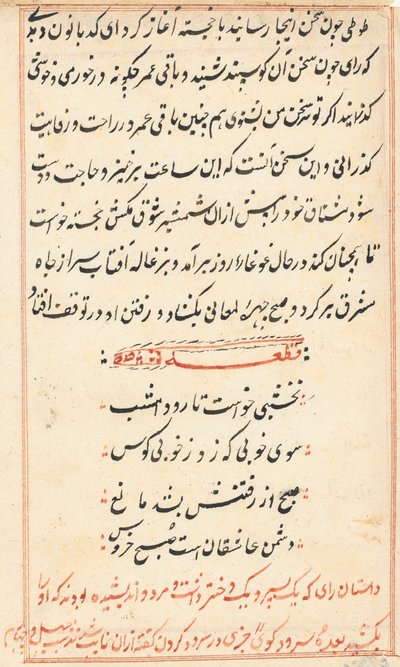 طوطی چون سخن اینجا رسانید با خجسته آغاز کرد ای کدبانو دیدی
که رای چون سخن آن کوسپند شنید و باقی عمر چگونه در خوری و خوشی
کذرانید اکر تو نیز سخن من بشنوی هم چنین باقی عمر در راحت و رفاهیت
کذرانی و این سخن آنست که این ساعت برخیز و حاجت دوست
شو و مشتاق خود را بیش ازان شمشیر شوق مکش خجسته خواست
تا همچنان کند در حال غوغاء روز برآمد و بزغاله آفتاب سر از چاه
مشرق برکرد و صبح چهرهٔ لمعانی بکشاد و رفتن او در توقف افتاد
قطعه
نخشبی خواست تا رود امشب
سوی خوبی که زد ز خوبی کوس
صبح از رفتنش بشد مانع
دشمن عاشقان است صبح خروس
داستان رای که یک پسر و یک دختر داشت و مردو اندیشیده بودند که او را
بکشند بعده سرود کوئی چیزی در سرود کردن کفته ازان